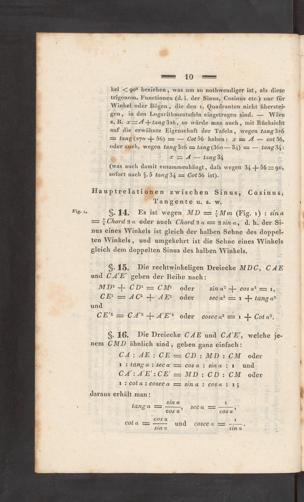 10
kel < 90° beziehen, was um so nothwendiger ist, als diese
trigonom. Functionen (d. i. der Sinus, Cosinus etc.) nur für
Winkel oder Bögen, die den 1. Quadranten nicht überstei-
gen, in den Logarithmentafeln eingetragen sind. — Wäre
z. B. x = A + tang 326, so würde man auch, mit Rücksicht
auf die erwähnte Eigenschaft der Tafeln, wegen tang 326
= tang (270 + 56) = — Cot 56 haben: x = A — cot 56,
oder auch, wegen tang 326 = tang (360 — 34) = — tang 34:
x = A — tang 34
(was auch damit zusammenhängt, dafs wegen 34 + 56 = 90,
sofort nach §. 5 tang 34 = Cot 56 ist).
Hauptrelationen zwischen Sinus, Cosinus,
Tangente u. s. w.
Fig. 1.
§. 14. Es ist wegen MD = ½ Mm (Fig. 1) : sin a
= ½ Chord 2 a oder auch Chord 2 a = 2 sin a, d. h. der Si-
nus eines Winkels ist gleich der halben Sehne des doppel-
ten Winkels, und umgekehrt ist die Sehne eines Winkels
gleich dem doppelten Sinus des halben Winkels.
§. 15. Die rechtwinkeligen Dreiecke MDC, CAE
und CA'E' geben der Reihe nach:
MD² + CD² = CM² oder sin a² + cos a² = 1,
CE² = AC² + AE² oder sec a² = 1 + tang a²
und
CE'² = CA'² + A'E'² oder cosec a² = 1 + Cot a².
§. 16. Die Dreiecke CAE und CA'E', welche je-
nem CMD ähnlich sind, geben ganz einfach:
CA : AE : CE = CD : MD : CM oder
1 : tang a : sec a = cos a : sin a : 1 und
CA' : A'E' : CE' = MD : CD : CM oder
1 : cot a : cosec a = sin a : cos a : 1;
daraus erhält man:
tang a = sin a / cos a, sec a = 1 / cos a,
cot a = cos a / sin a und cosec a = 1 / sin a.